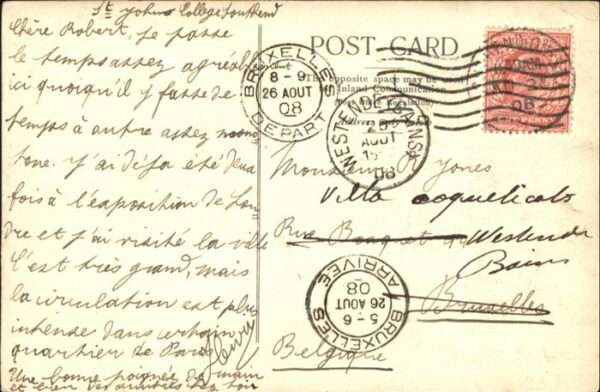 St Johns College Southend
Chère Robert, je passe
le temps assez agréabl
ici quoiqu'il y fasse de
temps à autre assez mono
tone. y'ai déja été deux
fois à l'exposition de Lon
dre et j'ai visité la ville
C'est très grand, mais
la circulation est plus
intense dans certain
quartier de Paris
Henry
Une bonne poignée de main
et bien des amitiés chez toi
POST CARD
The opposite space may be used
Inland Communication
BRUXELLES
8 - 9
26 AOUT
08
DEPART
WESTENDE (BAINS)
AOUT
08
Monsieur R Jones
Villa Coquelicots
Rue Bouquet
Westende
Bains
Bruxelles
Belgique
BRUXELLES
5 - 6
26 AOUT
08
ARRIVEE